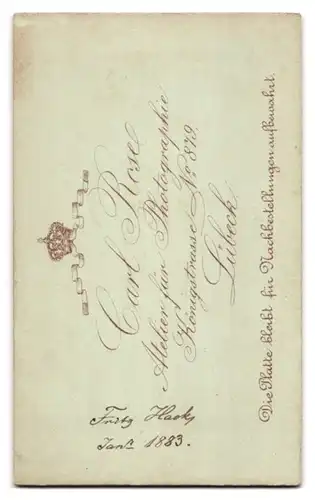 Carl Rose
Atelier für Photographie
Königstrasse No 879.
Lübeck
Die Platte bleibt für Nachbestellungen aufbewahrt.
Fritz
Jan. 1883.